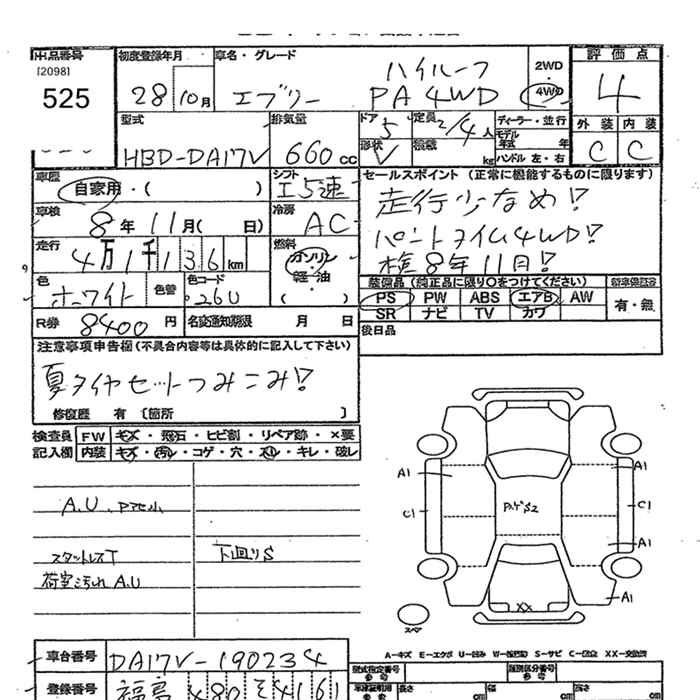 出品番号
[2098]
525
初度登録年月
28 10月
車名・グレード
ハイルーフ
エブリー PA 4WD
2WD
4WD
評価点
4
外装 内装
C C
型式
HBD-DA17V
排気量
660 cc
ドア 5
形状 V
定員 2/4 人
積載 kg
ディーラー・並行
モデル
年式 年
ハンドル 左・右
車歴
自家用・( )
シフト
I 5速
車検
8年 11月( 日)
冷房
AC
走行
4万1千136 km
燃料
ガソリン
軽・油
( )
色
ホワイト
色替
色コード
26U
R券 8400 円
名変通知期限 月 日
セールスポイント(正常に機能するものに限ります)
走行少なめ!
パートタイム4WD!
検8年11月!
装備品(純正品に限り○をつけてください)
PS PW ABS エアB AW
SR ナビ TV カワ
新車保証書
有・無
後日品
注意事項申告欄(不具合内容等は具体的に記入して下さい)
夏タイヤセットつみこみ!
修復歴 有 〔箇所 〕
検査員
記入欄
FW キズ・飛石・ヒビ割・リペア跡・×要
内装 キズ・汚れ・コゲ・穴・スレ・キレ・破レ
A.U
スタットレスT
荷室汚れ A.U
下廻りS
A1
C1
A1
C1
A1
A1
XX
スペア
A-キズ E-エクボ U-凹み W-補修跡 S-サビ C-腐食 XX-交換済
車台番号 DA17V-190234
登録番号
型式指定番号
参考
類別区分番号
参考
長さ cm
幅 cm
高さ cm